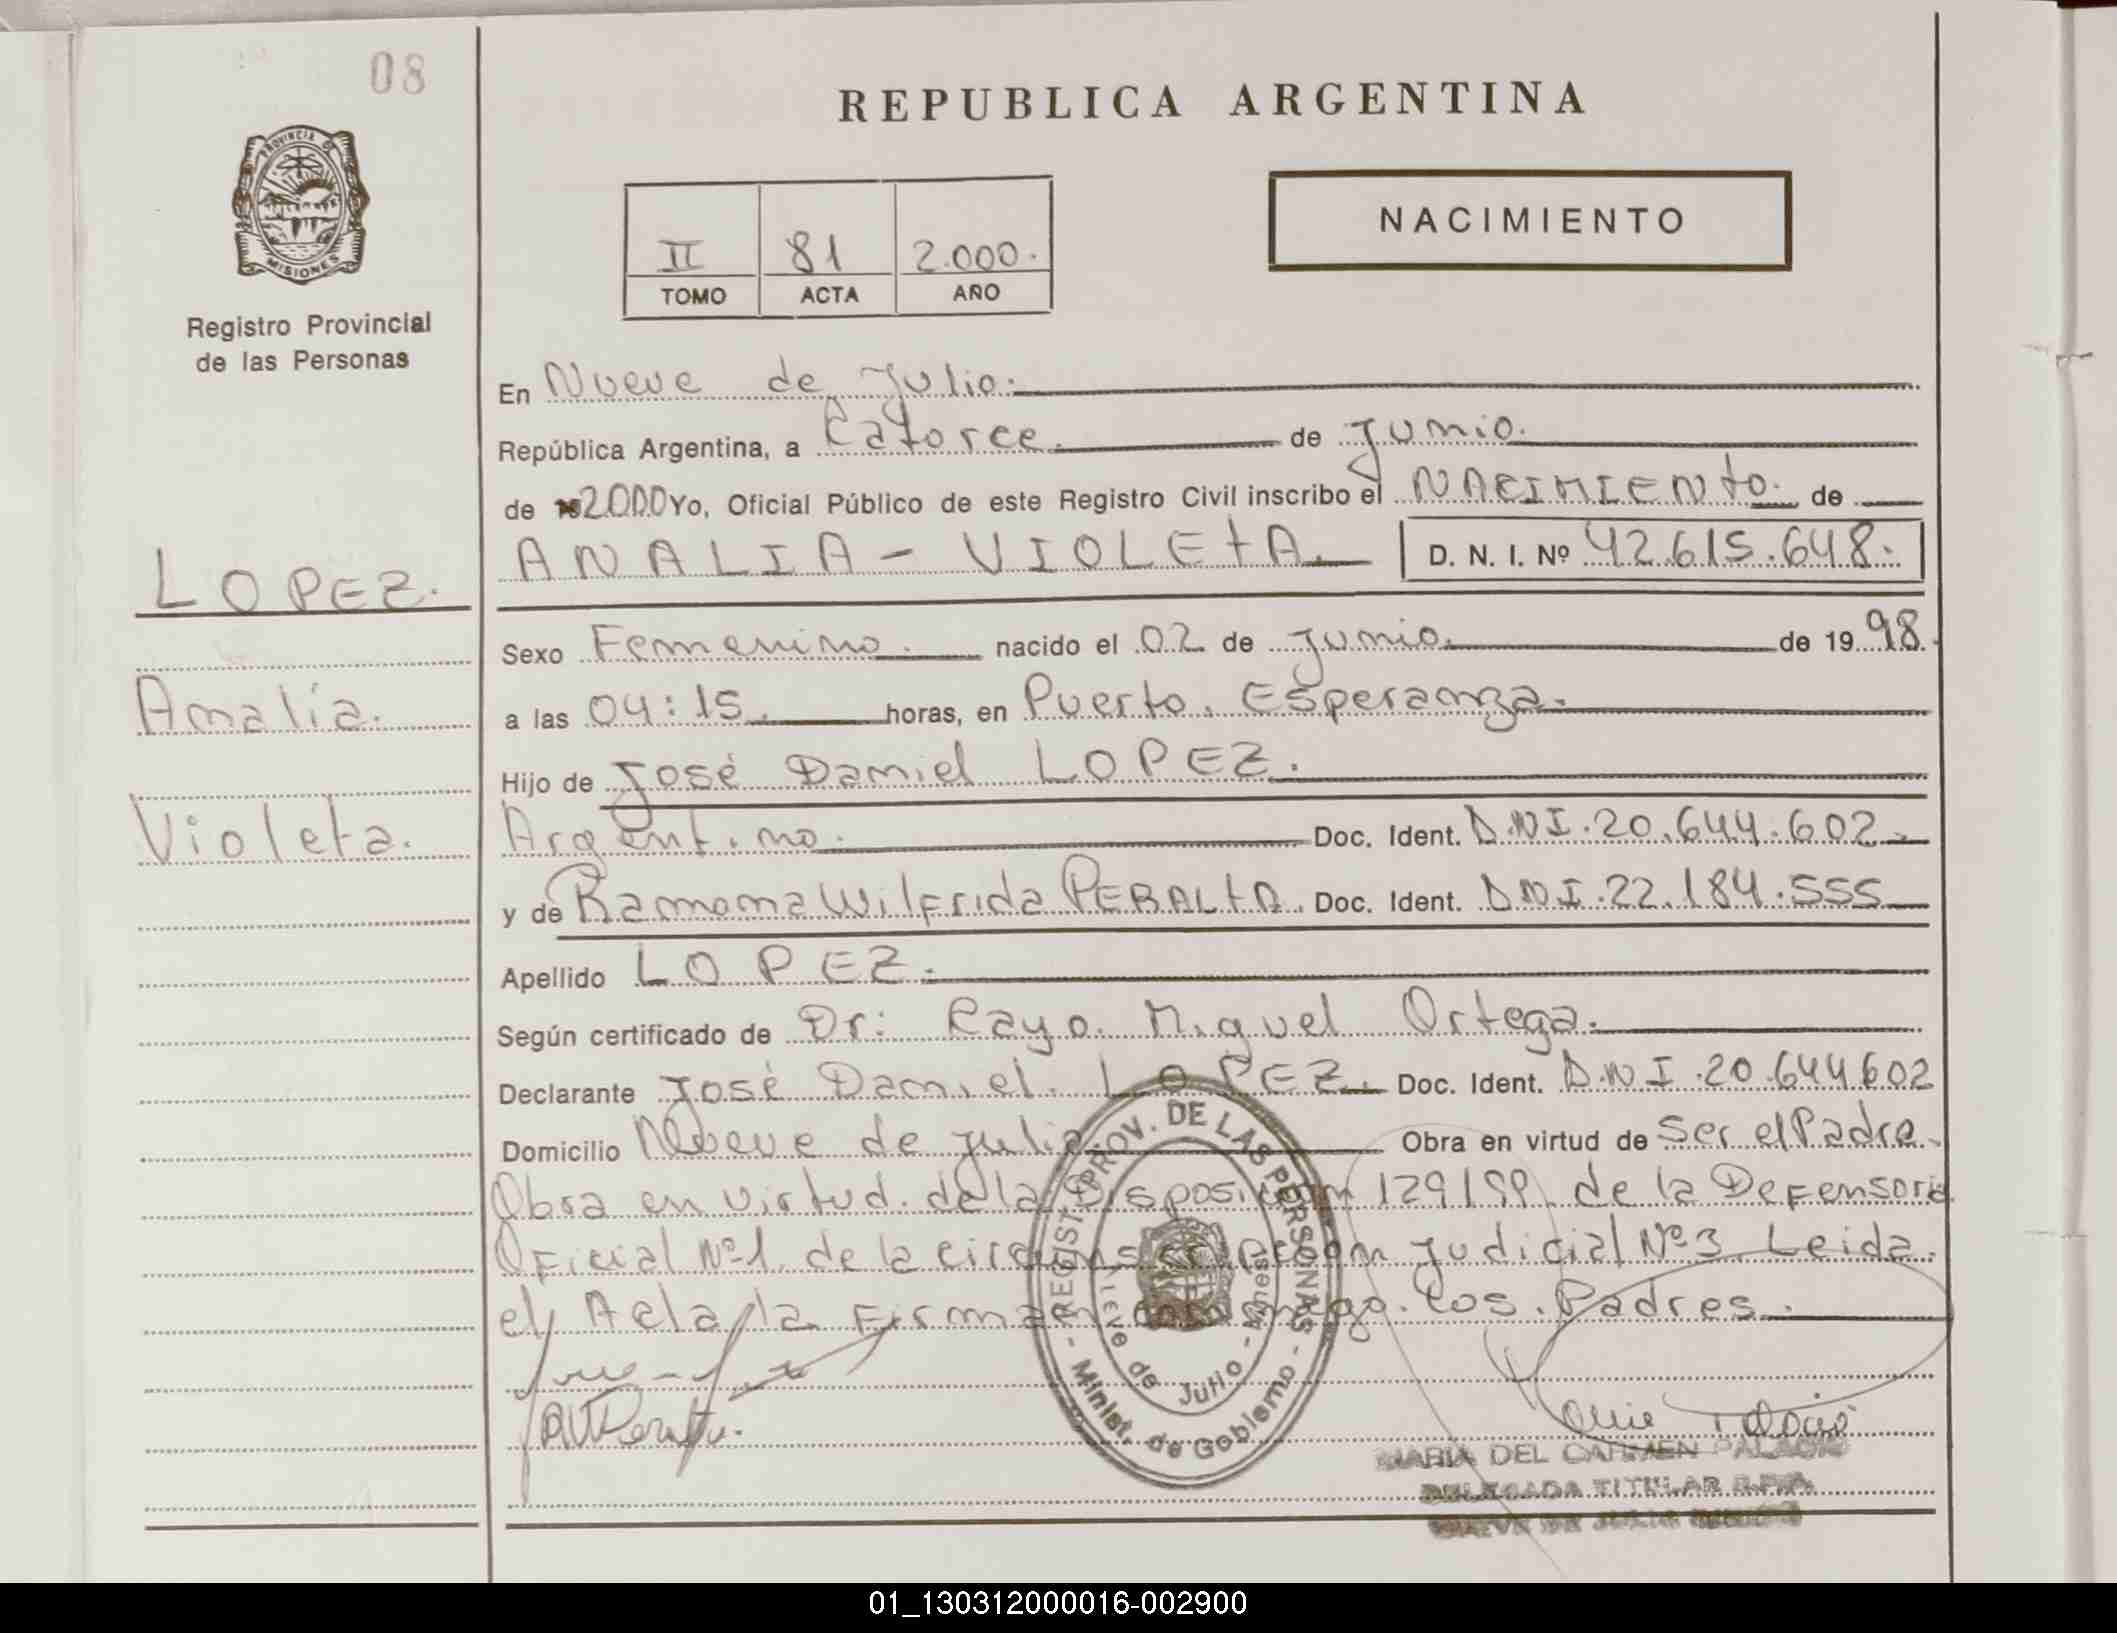 08
PROVINCIA DE
MISIONES
Registro Provincial
de las Personas
LOPEZ.
Analía.
Violeta.
REPUBLICA ARGENTINA
II 81 2.000.
TOMO ACTA AÑO
NACIMIENTO
En Nueve de Julio.
República Argentina, a Catorce. de Junio.
de 2000 Yo, Oficial Público de este Registro Civil inscribo el NACIMIENTO. de
ANALIA - VIOLETA. D. N. I. Nº 42.615.648.
Sexo Femenino. nacido el 02 de Junio. de 19 98.
a las 04:15. horas, en Puerto Esperanza.
Hijo de José Daniel LOPEZ.
Argentino. Doc. Ident. D.N.I. 20.644.602
y de Ramona Wilfrida PERALTA. Doc. Ident. D.N.I. 22.184.555
Apellido LOPEZ.
Según certificado de Dr: Cayo Miguel Ortega.
Declarante José Daniel LOPEZ. Doc. Ident. D.N.I. 20.644.602
Domicilio Nueve de Julio Obra en virtud de Ser el Padre.
Obra en virtud de la Disposición 129/99 de la Defensoria
Oficial Nº1 de la circunscripcion Judicial Nº3 Leida
el Acta la Firman conmigo los Padres.
REGIST. PROV. DE LAS PERSONAS
Nueve de Julio - Mnes
Minist. de Gobierno
MARIA DEL CARMEN PALACIO
DELEGADA TITULAR R.P.P.
NUEVE DE JULIO
01_130312000016-002900